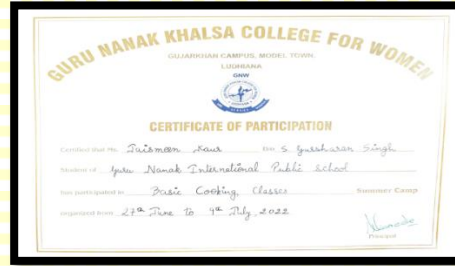 GURU NANAK KHALSA COLLEGE FOR WOMEN
GUJARKHAN CAMPUS, MODEL TOWN,
LUDHIANA
GNW
CERTIFICATE OF PARTICIPATION
Certified that Ms. Jaismeen Kaur D/o S. Gursharan Singh
Student of Guru Nanak International Public School
has participated in Basic Cooking Classes Summer Camp
organized from 27th June to 4th July, 2022
Principal